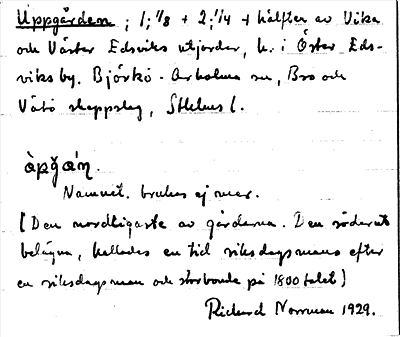 Uppgården ; 1; 1/8 + 2; 1/4 + hälften av Vika
och Väster Edsviks utjordar, h. i Öster Eds-
viksby. Björkö-Arholma sn, Bro och
Vätö skeppslag, Sthlms l.
àpgán.
Namnet brukas ej mer.
[Den nordligaste av gårdarna. Den söderut
belägna, kallades en tid riksdagsmans efter
en riksdagsman och storbonde på 1800 talet]
Richard Norrman 1929.